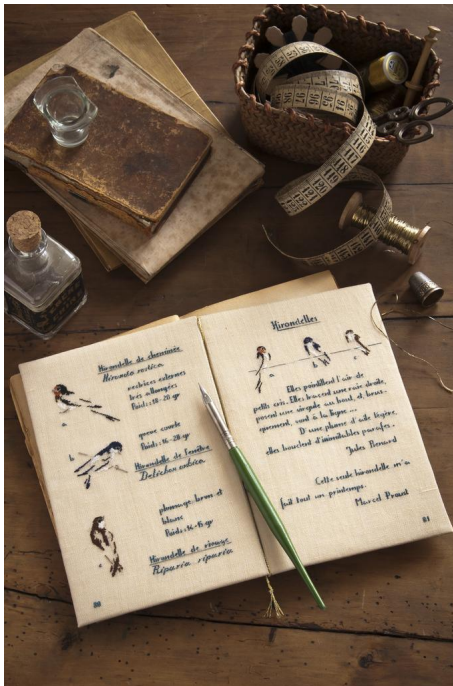 Hirondelle de cheminée
Hirundo rustica
rectrices externes
très allongées
Poids: 18-20 gr
queue courte
Poids: 16-28 gr
Hirondelle de fenêtre
Delichon urbica
plumage brun et
blanc
Poids: 14-15 gr
Hirondelle de rivage
Riparia riparia
80
Hirondelles
Elles pointillent l'air de
petits cris. Elles tracent une raie droite,
posent une virgule au bout, et, brus-
quement, vont à la ligne...
D'une plume d'aile légère,
elles bouclent d'inimitables parafes.
Jules Renard
Cette seule hirondelle m'a
fait tout un printemps.
Marcel Proust
81